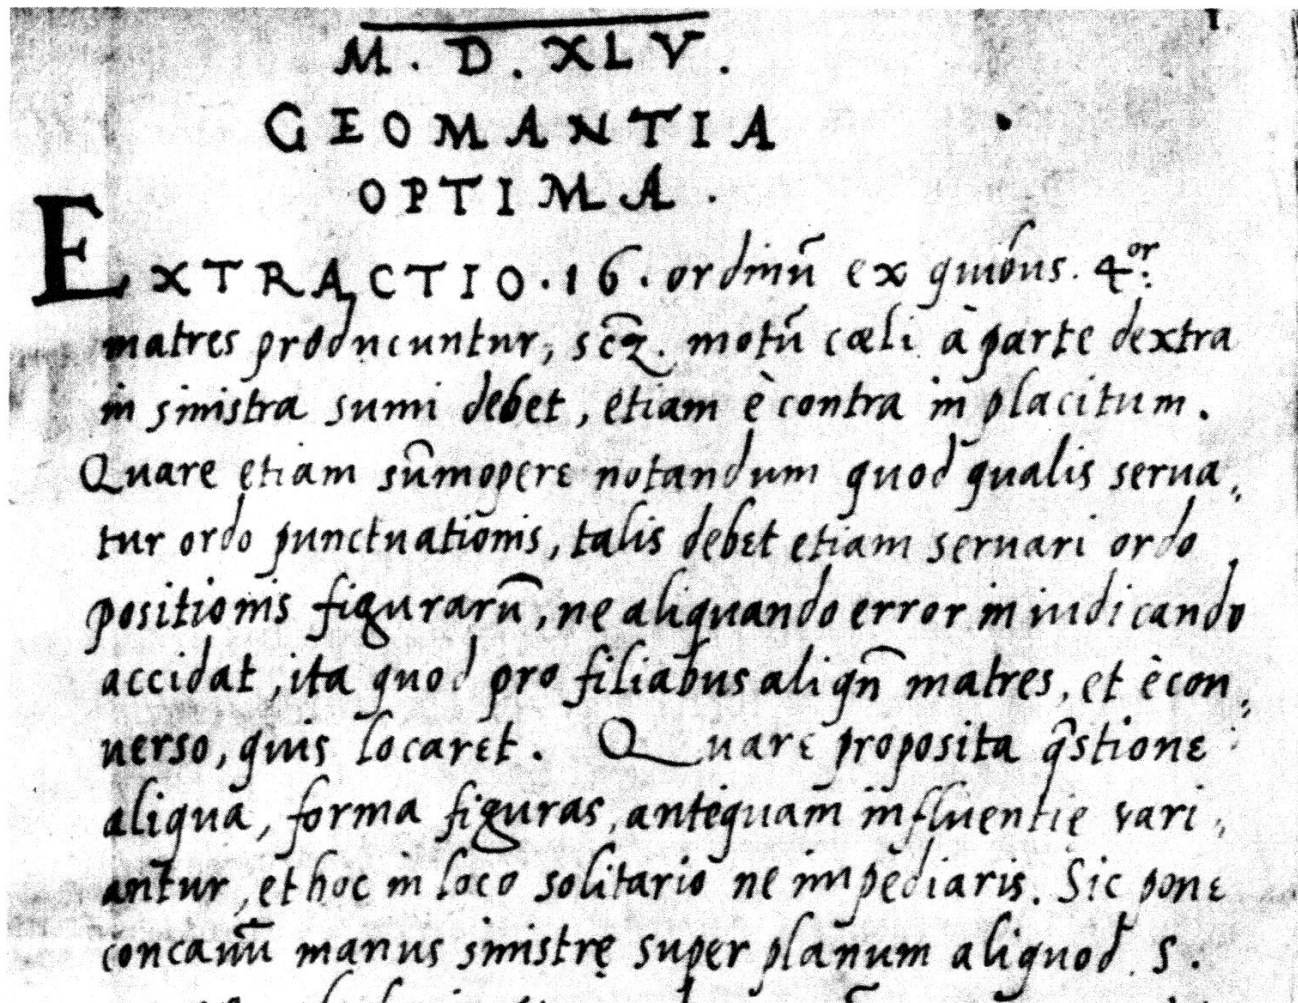 M. D. XLV.
GEOMANTIA
OPTIMA.
EXTRACTIO. 16. ordinū ex quibus. 4or:
matres producuntur, scꝫ. motū cœli à parte dextra
in sinistra sumi debet, etiam è contra in placitum.
Quare etiam sūmopere notandum quod qualis serua„
tur ordo punctuationis, talis debet etiam seruari ordo
positionis figurarū, ne aliquando error in iudicando
accidat, ita quod pro filiabus aliqn̄ matres, et è con„
uerso, quis locaret. Quare proposita q̄stione
aliqua, forma figuras, anteq̄uam influentię vari„
antur, et hoc in loco solitario ne impediaris. Sic pone
concauū manus sinistrę super planum aliquod. S.